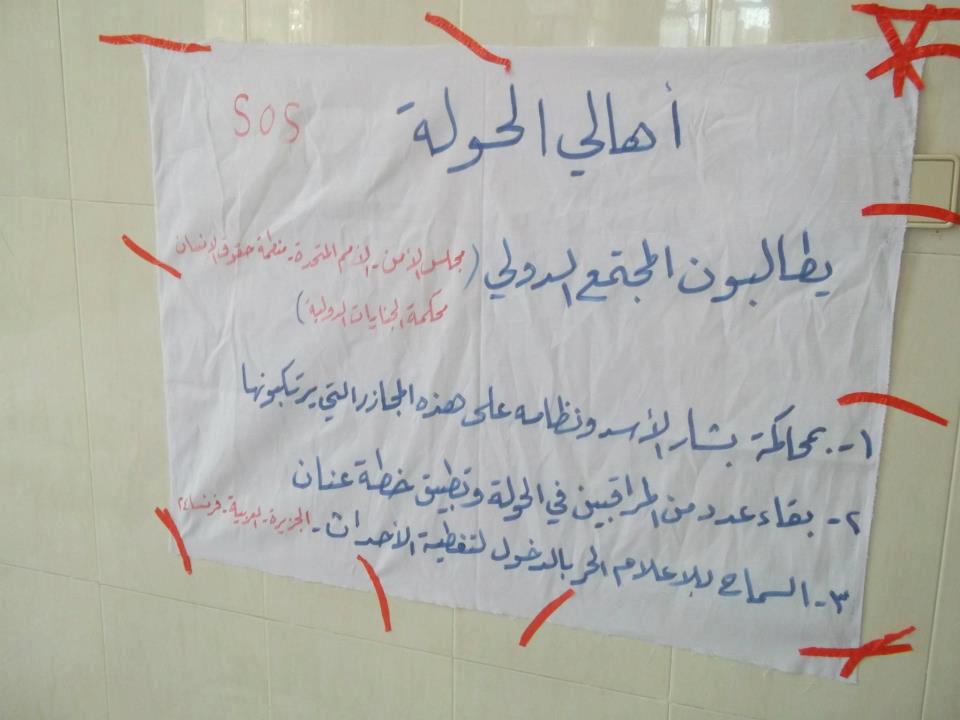 أهالي الحولة SOS
يطالبون المجتمع الدولي (مجلس الأمن - الأمم المتحدة - منظمة حقوق الإنسان
محكمة الجنايات الدولية)
١- بمحاكمة بشار الأسد ونظامه على هذه المجازر التي يرتكبونها
٢- بقاء عدد من المراقبين في الحولة وتطبيق خطة عنان
٣- السماح للاعلام الحر بالدخول لتغطية الأحداث - الجزيرة - العربية - فرنسا ٢٤